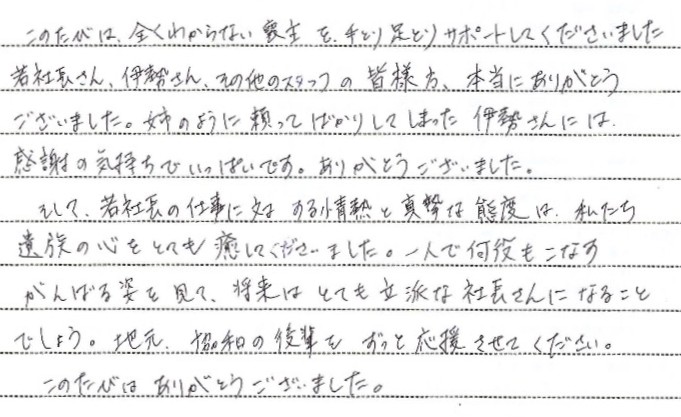 このたびは、全くわからない喪主を、手とり足とりサポートしてくださいました
若社長さん、伊勢さん、その他のスタッフの皆様方、本当にありがとう
ございました。姉のように頼ってばかりしてしまった伊勢さんには、
感謝の気持ちでいっぱいです。ありがとうございました。
そして、若社長の仕事に対する情熱と真摯な態度は、私たち
遺族の心をとても癒してくださいました。一人で何役もこなす
がんばる姿を見て、将来はとても立派な社長さんになること
でしょう。地元、協和の後輩をずっと応援させてください。
このたびはありがとうございました。